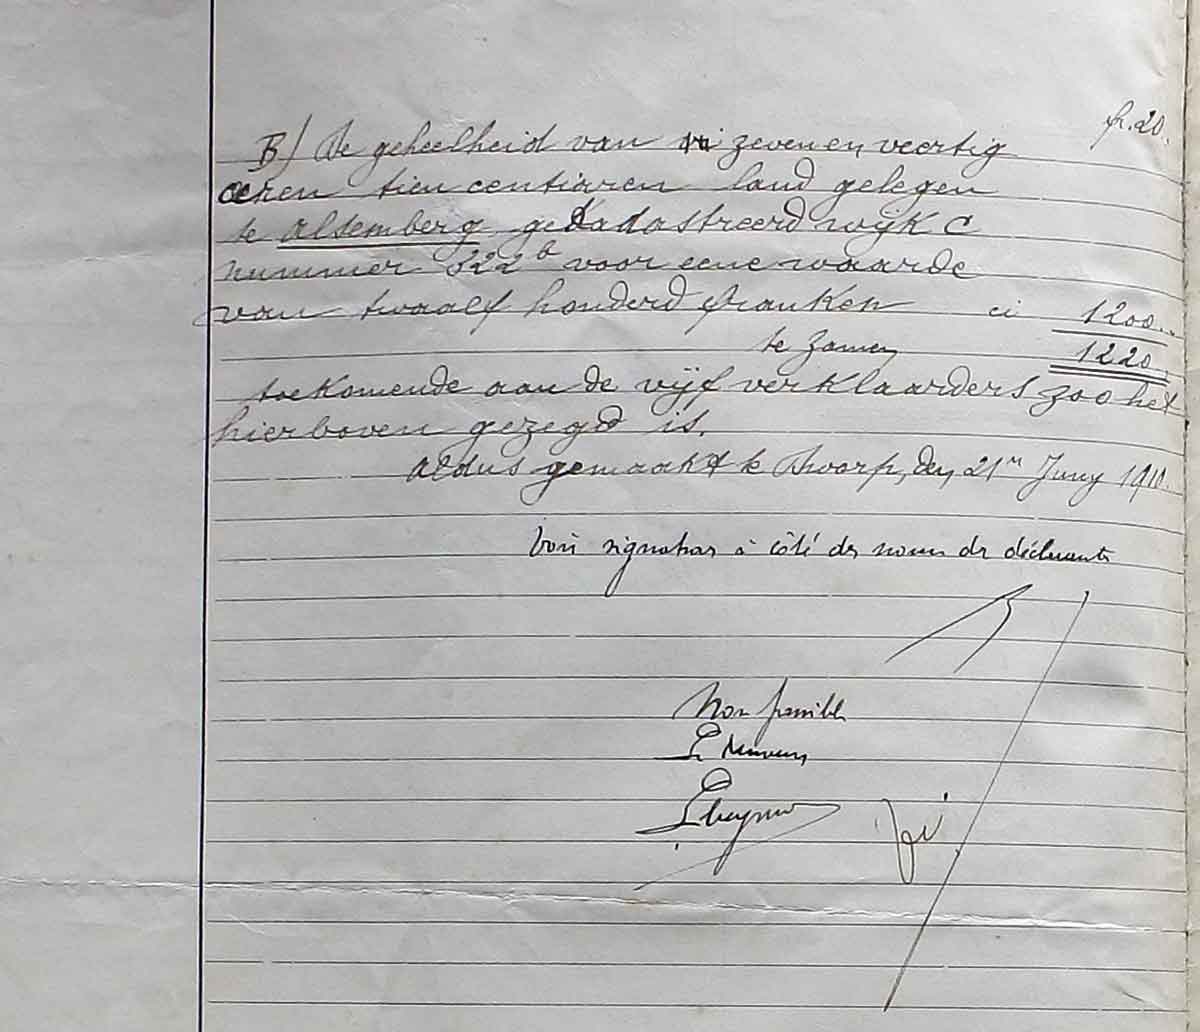 fr. 20.
B/ De geheelheid van zeven en veertig
aren tien centiaren land gelegen
te alsemberg gekadastreerd wijk C
nummer 322b voor eene waarde
van twaalf honderd franken ci 1200..
te zamen 1220
toekomende aan de vijf verklaarders zoo het
hierboven gezegd is.
aldus gemaakt te Dworp, den 21n Juny 1910.
Voir signatures à côté des noms des déclarants
Non passible
Le Receveur